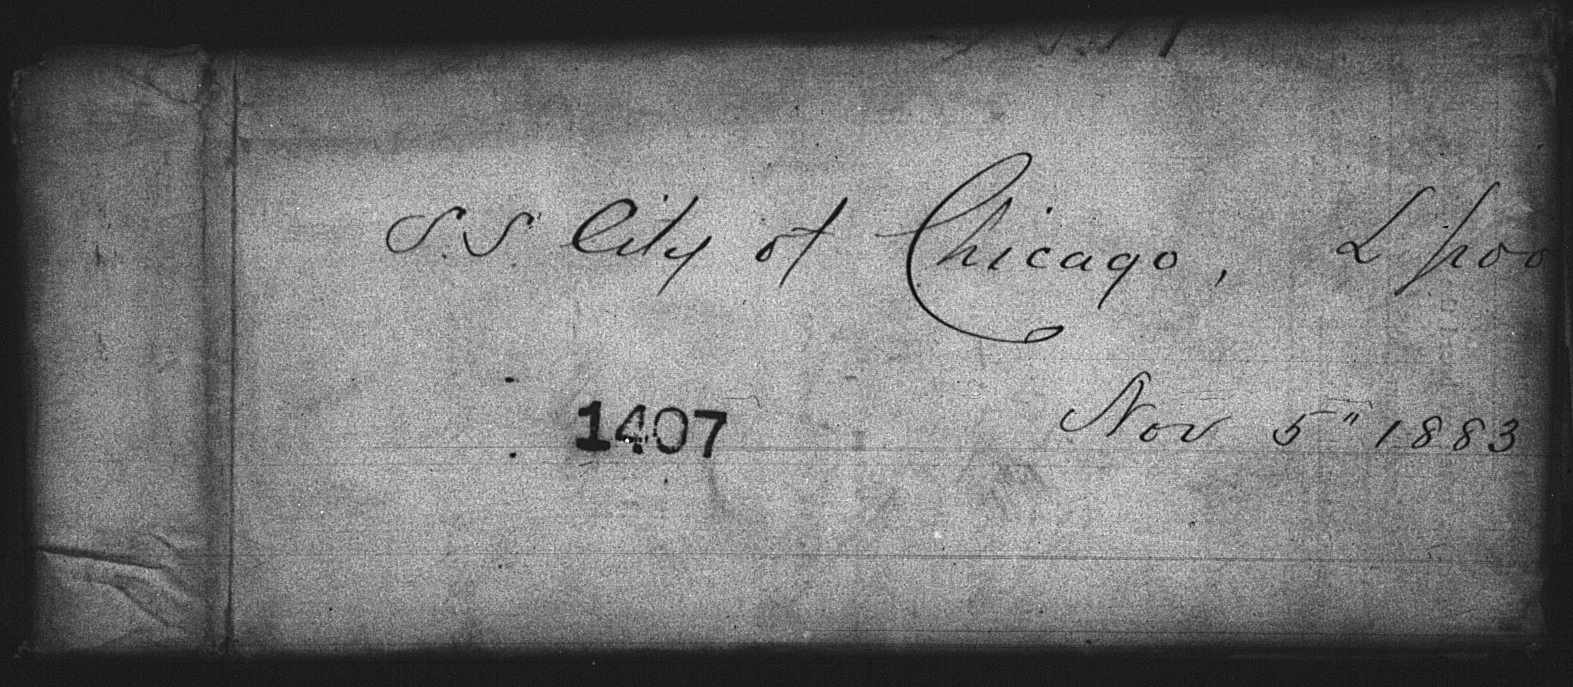 S.S. City of Chicago, L'poo
1407
Nov 5" 1883